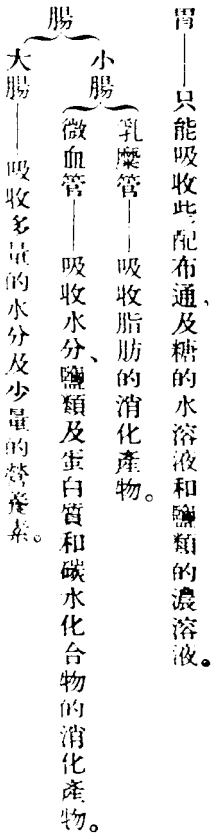 胃——只能吸收些配布通、及糖的水溶液和鹽類的濃溶液。
腸
小腸
乳糜管——吸收脂肪的消化產物。
微血管——吸收水分、鹽類及蛋白質和碳水化合物的消化產物。
大腸——吸收多量的水分及少量的營養素。